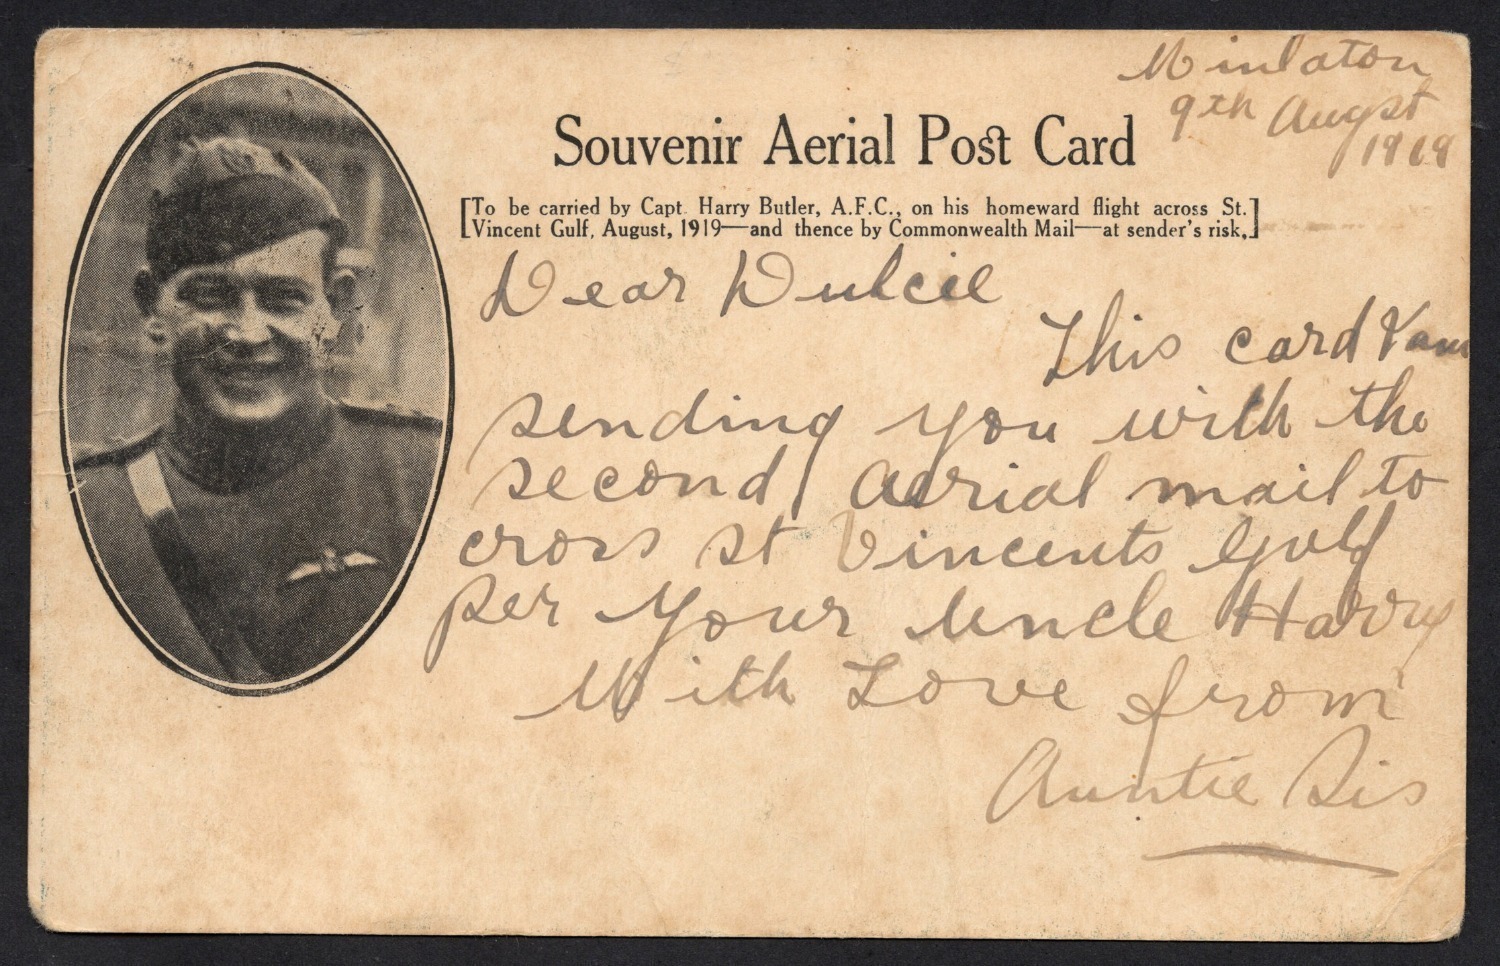 Minlaton
9th Augst
1919
Souvenir Aerial Post Card
[To be carried by Capt. Harry Butler, A.F.C., on his homeward flight across St.
Vincent Gulf, August, 1919—and thence by Commonwealth Mail—at sender's risk.]
Dear Dulcie
This card I am
sending you with the
second aerial mail to
cross st Vincents Gulf
per your Uncle Harry
With Love from
Auntie Sis